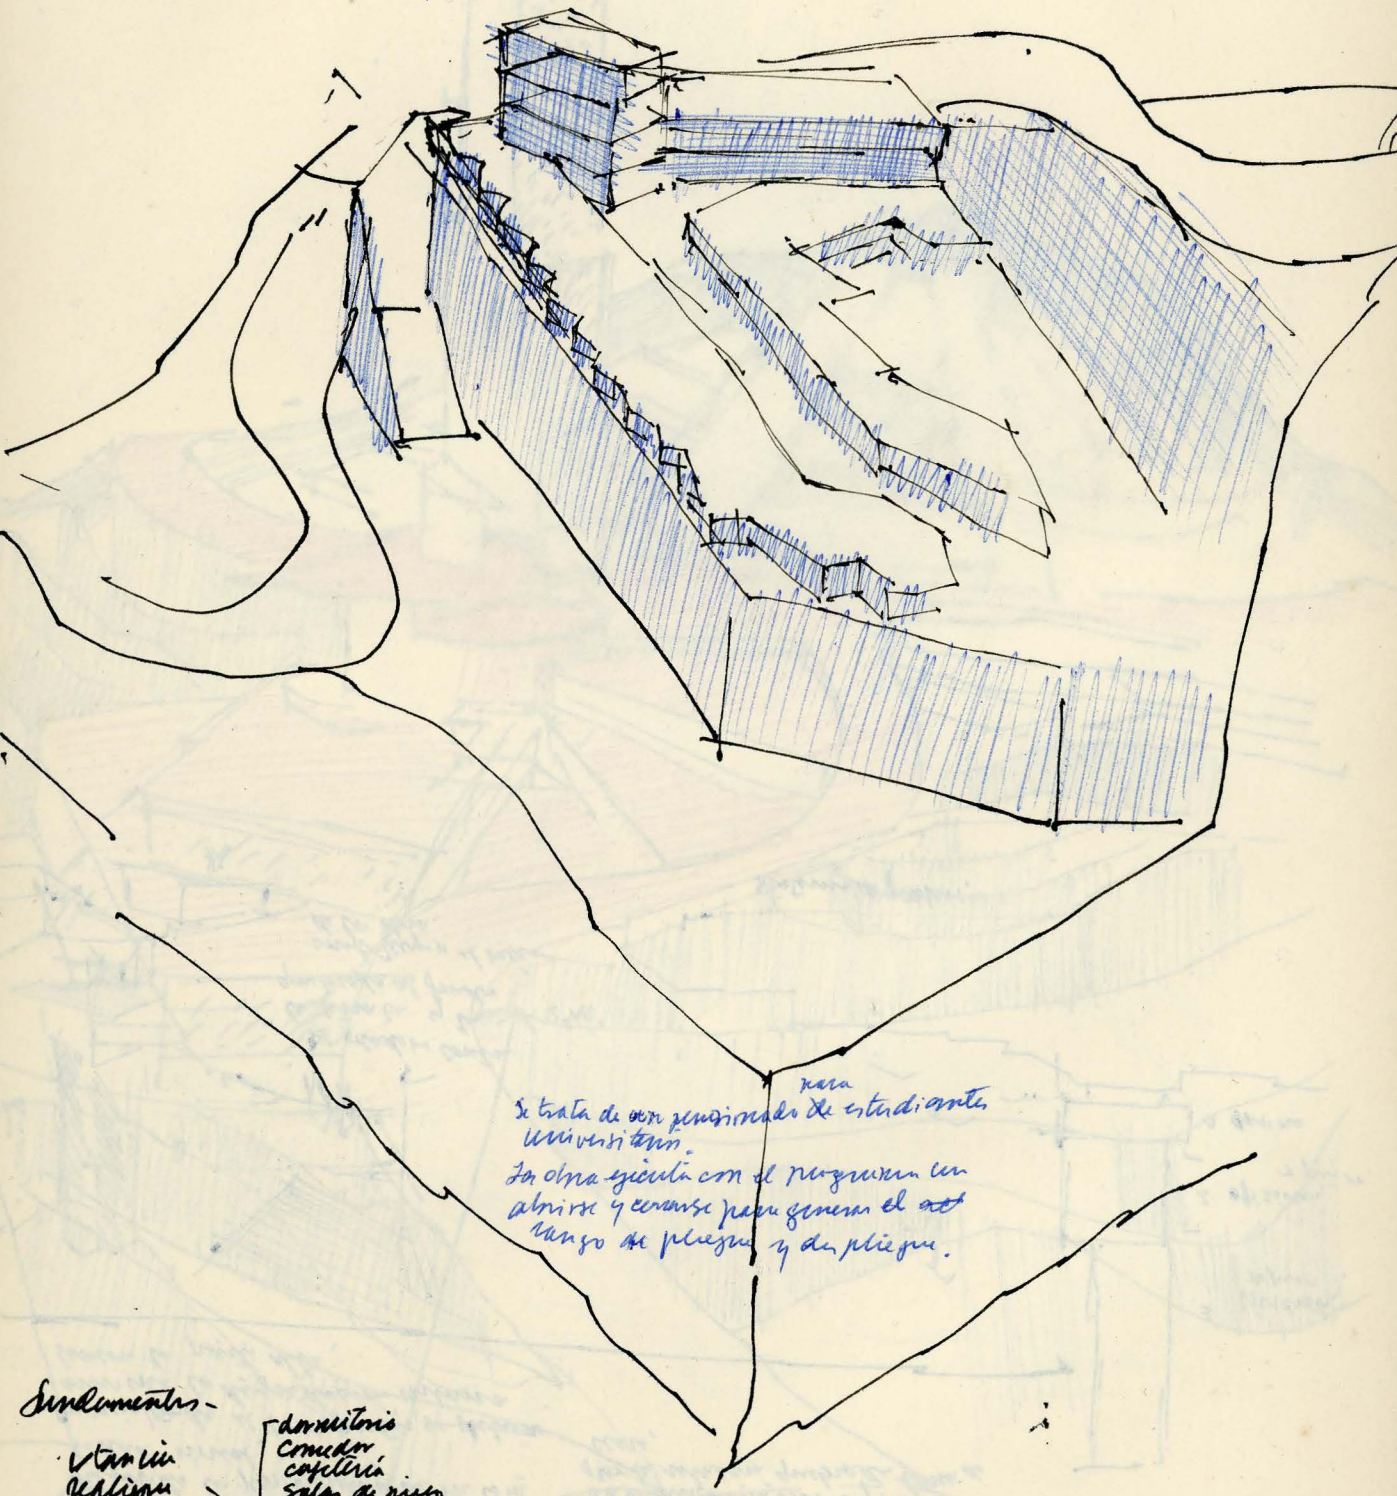 para
Se trata de un pensionado de estudiantes
universitarios.
La obra ejecuta con el programa un
abrirse y cerrarse para generar el act
rasgo de pliegue y despliegue.
Fundamentos-
dormitorio
comedor
cafetería
salas de
estancia
repliegue